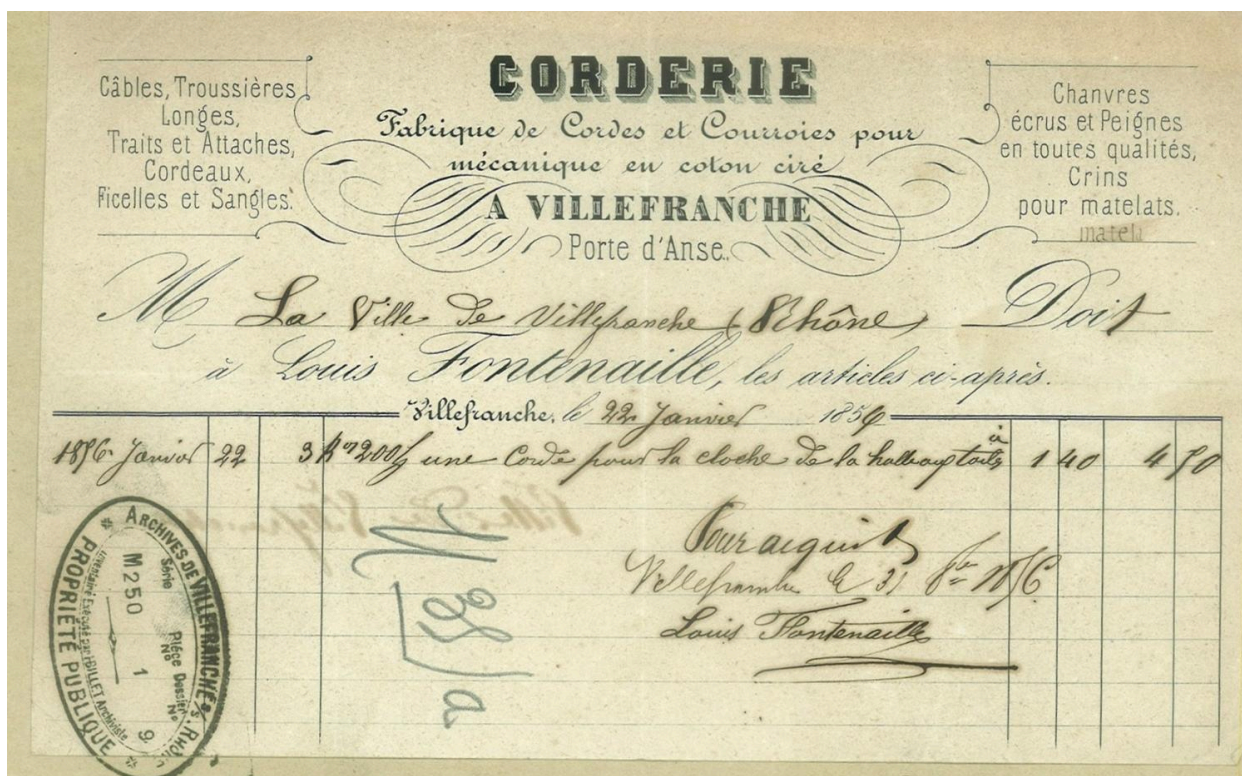 Câbles, Troussières
Longes,
Traits et Attaches,
Cordeaux,
Ficelles et Sangles.
CORDERIE
Fabrique de Cordes et Courroies pour
mécanique en coton ciré
A VILLEFRANCHE
Porte d'Anse.
Chanvres
écrus et Peignes
en toutes qualités,
Crins
pour matelats.
M La Ville de Villefranche (Rhône) Doit
à Louis Fontenaille, les articles ci-après.
Villefranche, le 22 Janvier 1856
1856 Janvier 22 3 K 200 une Corde pour la cloche de la halle à 1 40 4 50
Pour acquit
Villefranche le 31 8bre 1856
Louis Fontenaille
ARCHIVES DE VILLEFRANCHE s. RHÔNE
Série
M 250
Pièce No
1
Dossier No
9
Inventaire Exécuté par BILLET Archiviste
PROPRIÉTÉ PUBLIQUE